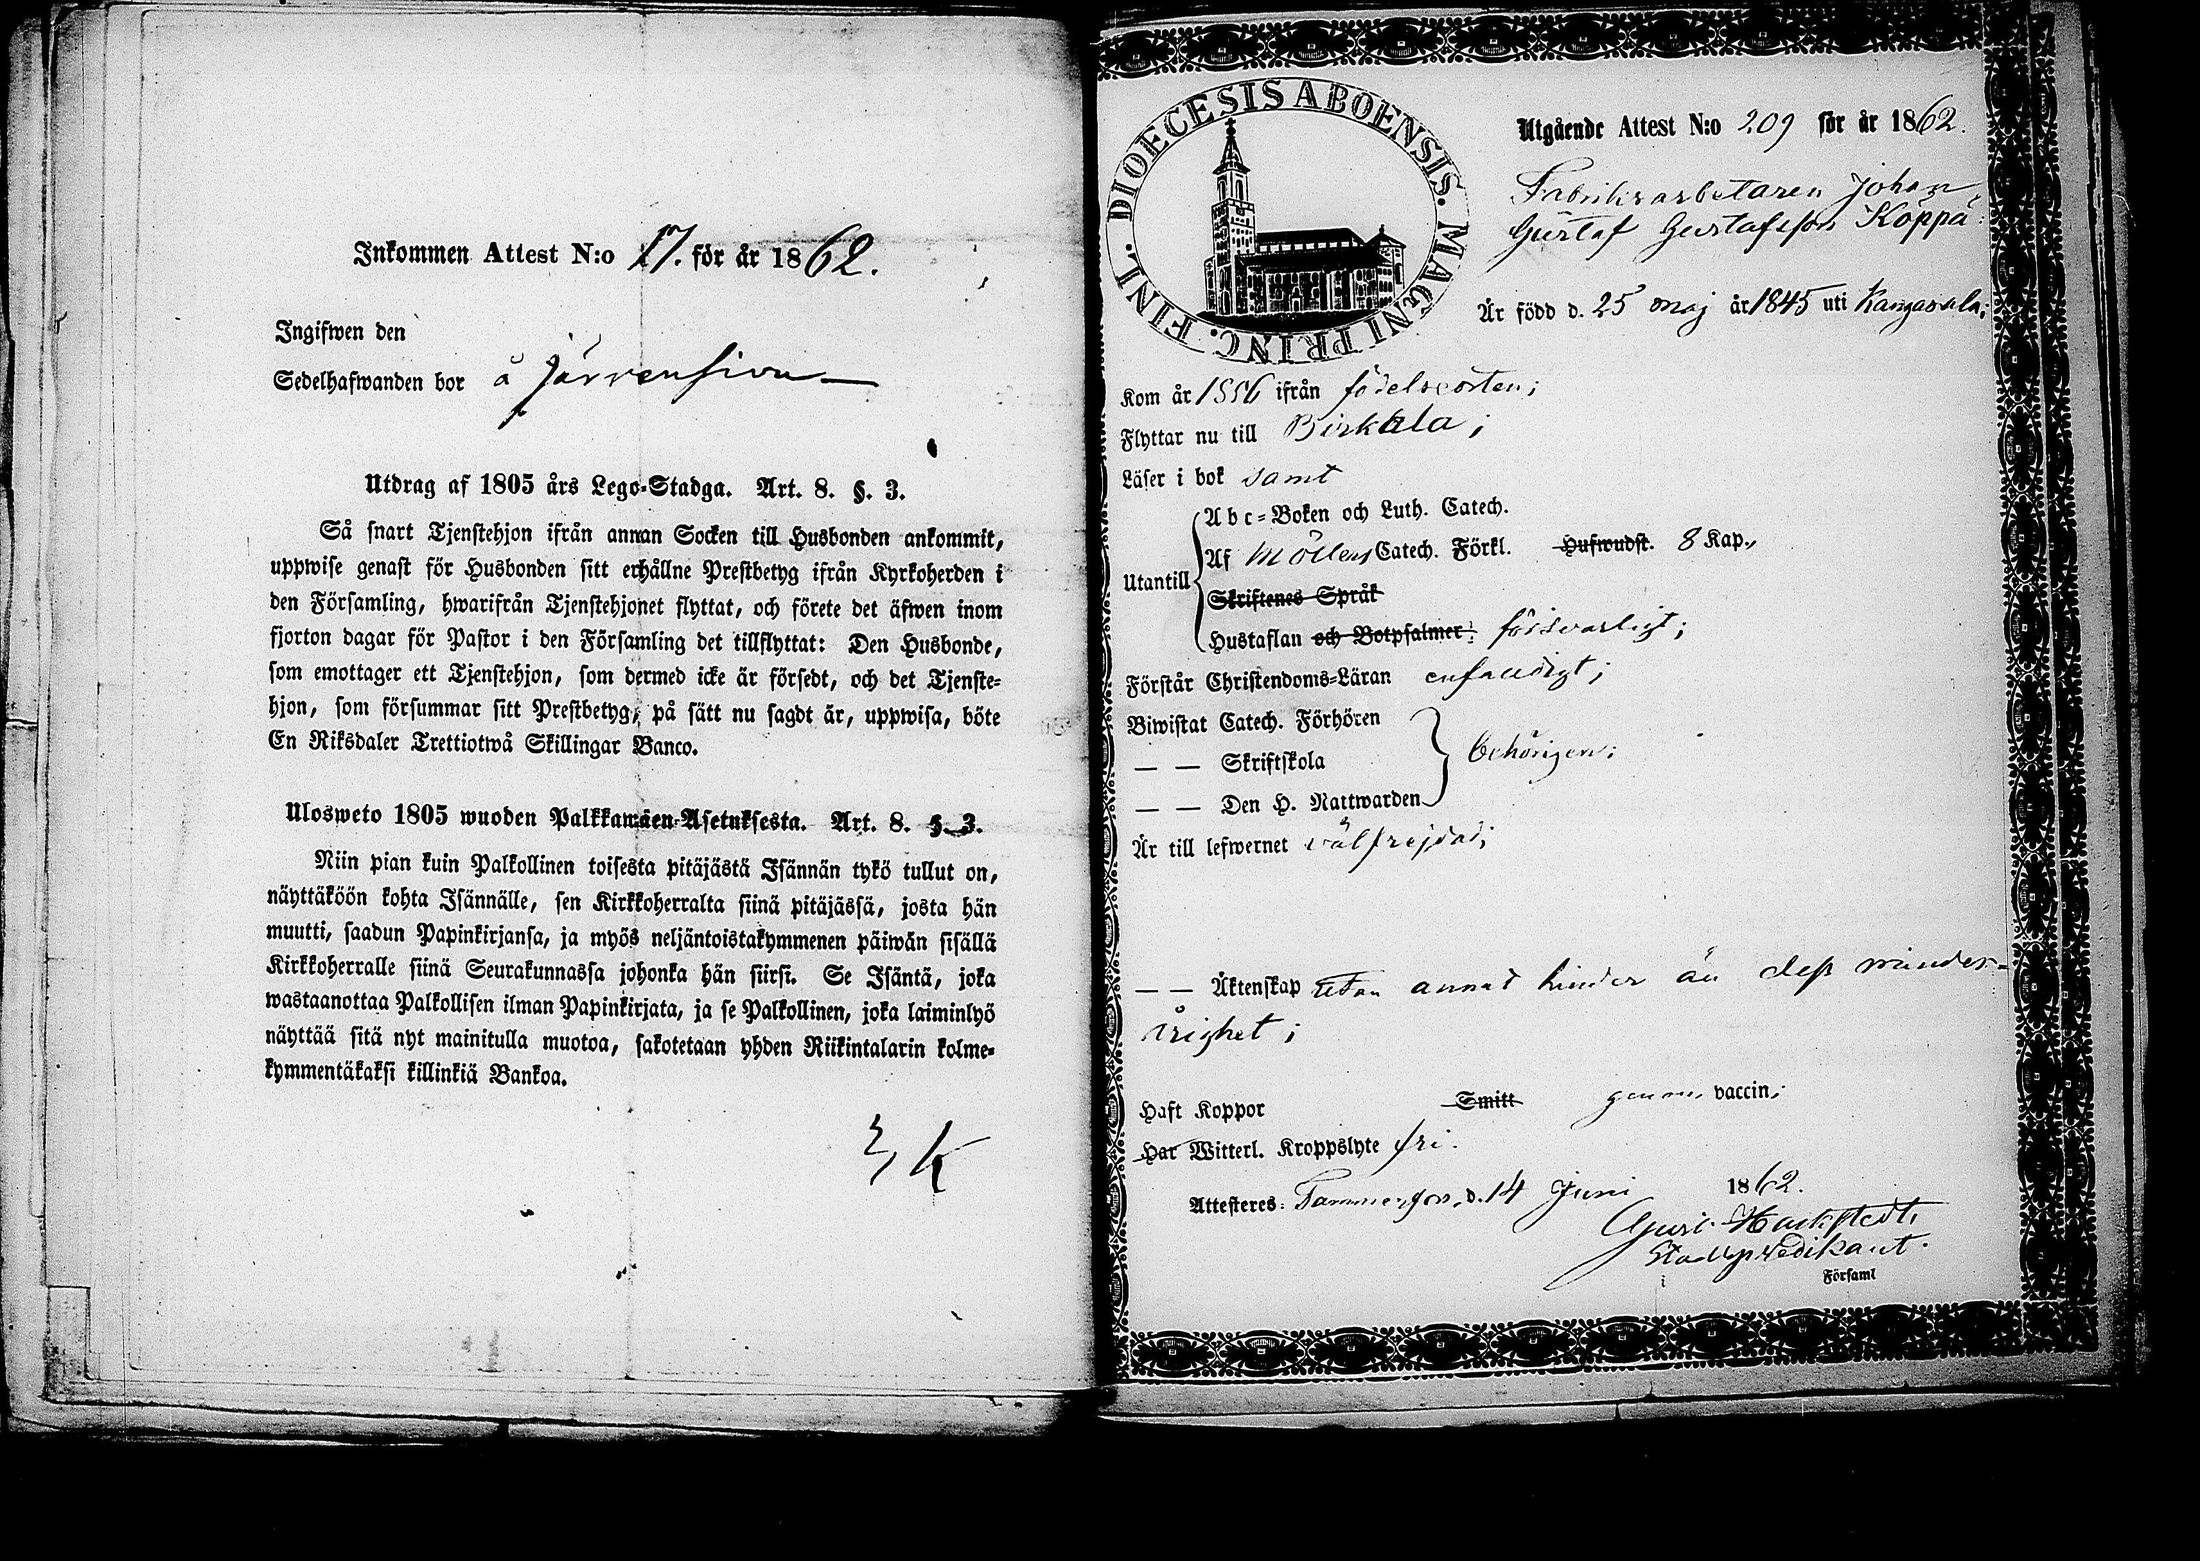 Inkommen Attest N:o 17. för år 1862.
Ingifwen den
Sedelhafwanden bor å Järvensivu
Utdrag af 1805 års Lego-Stadga. Art. 8. §. 3.
Så snart Tjenstehjon ifrån annan Socken till Husbonden ankommit,
uppwise genast för Husbonden sitt erhållne Prestbetyg ifrån Kyrkoherden i
den Församling, hwarifrån Tjenstehjonet flyttat, och förete det äfwen inom
fjorton dagar för Pastor i den Församling det tillflyttat: Den Husbonde,
som emottager ett Tjenstehjon, som dermed icke är försedt, och det Tjenste-
hjon, som försummar sitt Prestbetyg, på sätt nu sagdt är, uppwisa, böte
En Riksdaler Trettiotwå Skillingar Banco.
Ulosweto 1805 wuoden Palkkawäen-Asetuksesta. Art. 8. §. 3.
Niin pian kuin Palkollinen toisesta pitäjästä Isännän tykö tullut on,
näyttäköön kohta Isännälle, sen Kirkkoherralta siinä pitäjässä, josta hän
muutti, saadun Papinkirjansa, ja myös neljäntoistakymmenen päiwän sisällä
Kirkkoherralle siinä Seurakunnassa johonka hän siirsi. Se Isäntä, joka
wastaanottaa Palkollisen ilman Papinkirjata, ja se Palkollinen, joka laiminlyö
näyttää sitä nyt mainitulla muotoa, sakotetaan yhden Riikintalarin kolme-
kymmentäkaksi killinkiä Bankoa.
DIOECESIS ABOENSIS. MAGNI PRINC. FINL.
Utgående Attest N:o 209 för år 1862.
Fabriksarbetaren Johan
Gustaf Gustafsson Koppa:
Är född d. 25 maj år 1845 uti Kangasala;
Kom år 1856 ifrån födelseorten;
Flyttar nu till Birkkala;
Läser i bok samt
Abc-Boken och Luth. Catech.
Af Möllers Catech. Förkl. Hufwudst. 8 Kap.,
Utantill
Skriftenes Språk
Hustaflan och Botpsalmer: försvarligt;
Förstår Christendoms-Läran enfaldigt;
Biwistat Catech. Förhören
— — Skriftskola behörigen;
— — Den H. Nattwarden
Är till lefwernet välfrejdad;
— — Äktenskap utan annat hinder än dess minder-
årighet;
Haft Koppor Smitt genom vaccin;
Har Witterl. Kroppslyte fri.
Attesteres: Tammerfors, d. 14 Juni 1862.
Stadspredikant.
Församl